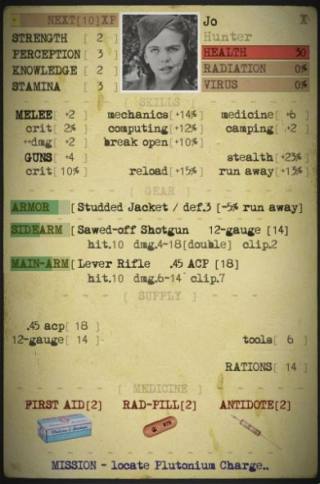 NEXT[10]XP
Jo
X
Hunter
STRENGTH [ 2 ]
PERCEPTION [ 3 ]
KNOWLEDGE [ 2 ]
STAMINA [ 3 ]
HEALTH 30
RADIATION 0%
VIRUS 0%
[ SKILLS ]
MELEE[ +2 ] mechanics[+14%] medicine[ +6 ]
crit[ 2% ] computing[+12%] camping[ +2 ]
+dmg[ +2 ] break open[+10%]
GUNS[ +4 ] stealth[+23%]
crit[ 10% ] reload[+15%] run away[+13%]
[ GEAR ]
ARMOR [Studded Jacket / def.3 [-5% run away]
SIDEARM [Sawed-off Shotgun 12-gauge [14]
hit.10 dmg.4-18[double] clip.2
MAIN-ARM[Lever Rifle .45 ACP [18]
hit.10 dmg.6-14 clip.7
[ SUPPLY ]
.45 acp[ 18 ]
12-gauge[ 14 ] tools[ 6 ]
RATIONS[ 14 ]
[ MEDICINE ]
FIRST AID[2] RAD-PILL[2] ANTIDOTE[2]
MISSION - locate Plutonium Charge..